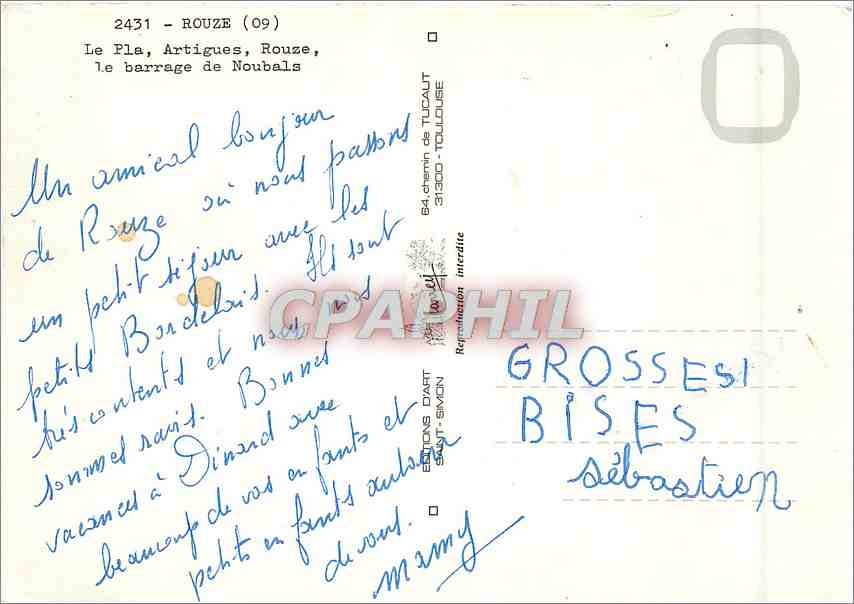 2431 - ROUZE (09)
Le Pla, Artigues, Rouze,
le barrage de Noubals
Un amical bonjour
de Rouze où nous passons
un petit séjour avec les
petits Bordelais. Ils sont
très contents et nous
sommes ravis. Bonnes
vacances à Dinard avec
beaucoup de vos enfants et
petits enfants autour
de vous.
Mamy
64, chemin de TUCAUT
31300 - TOULOUSE
Reproduction interdite
EDITIONS D'ART
SAINT-SIMON
CPAPHIL
GROSSES
BISES
Sébastien